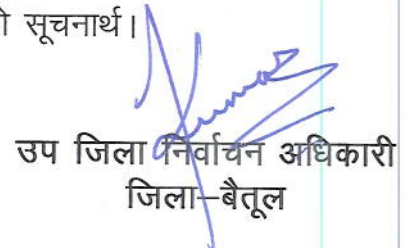 ो सूचनार्थ।
उप जिला निर्वाचन अधिकारी
जिला–बैतूल